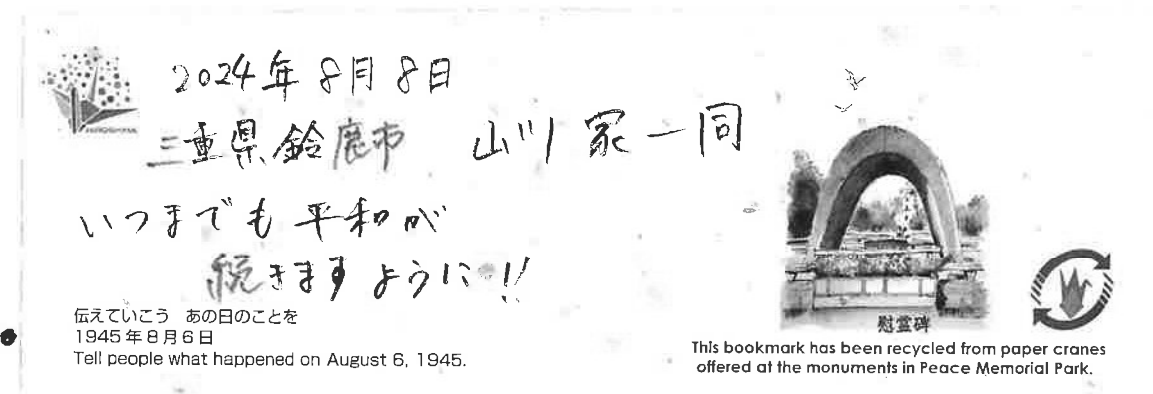 2024年8月8日
三重県鈴鹿市 山川家一同
いつまでも平和が
続きますように!!
伝えていこう あの日のことを
1945年8月6日
Tell people what happened on August 6, 1945.
慰霊碑
This bookmark has been recycled from paper cranes
offered at the monuments in Peace Memorial Park.